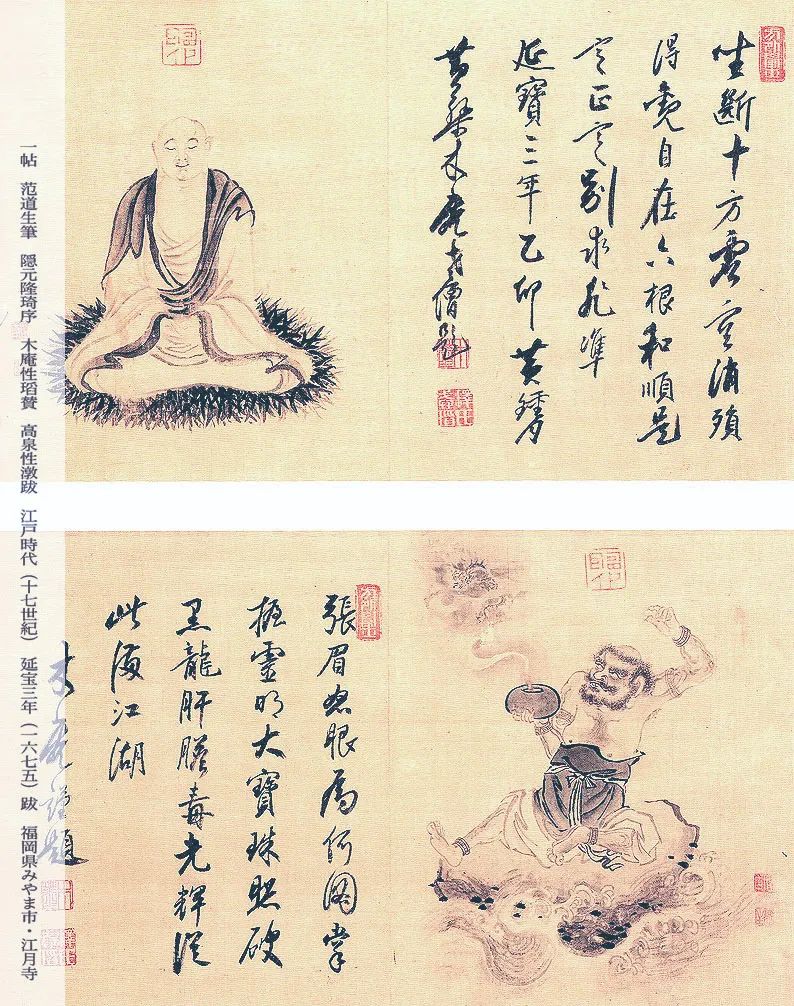 坐斷十方虛空消殞
得自在六根和順是
定正定別求非準
延寶三年乙卯黃鐘月
黃檗木菴老僧題
張眉怒眼為何圖掌
握靈明大寶珠照破
黑龍肝膽毒光輝從
此徧江湖
木菴瑫題
一帖　范道生筆　隠元隆琦序　木庵性瑫賛　高泉性潡跋　江戸時代（十七世紀）　延宝三年（一六七五）跋　福岡県みやま市・江月寺